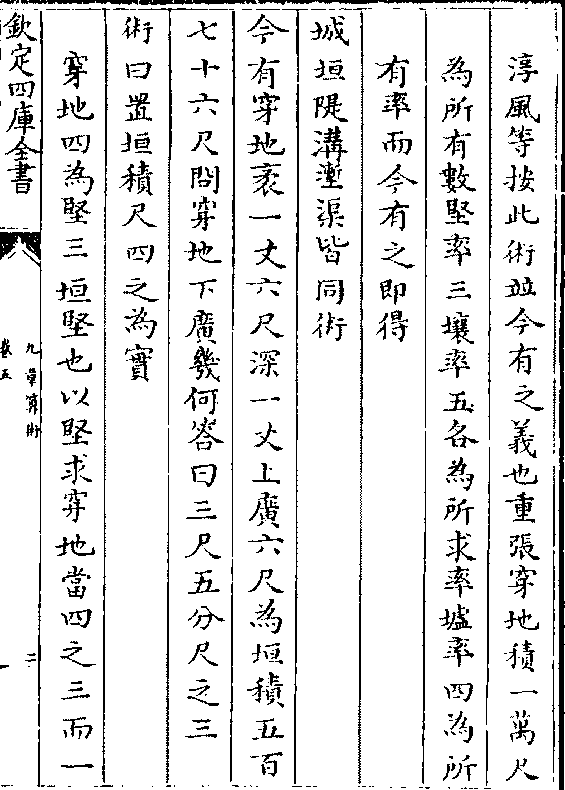 淳風等按此術竝今有之義也重張穿地積一萬尺
為所有數堅率三壤率五各為所求率墟率四為所
有率而今有之即得
城垣隄溝壍渠皆同術
今有穿地袤一丈六尺深一丈上廣六尺為垣積五百
七十六尺問穿地下廣幾何答曰三尺五分尺之三
術曰置垣積尺四之為實
穿地四為堅三垣堅也以堅求穿地當四之三而一
欽定四庫全書
九章算術
卷五
二